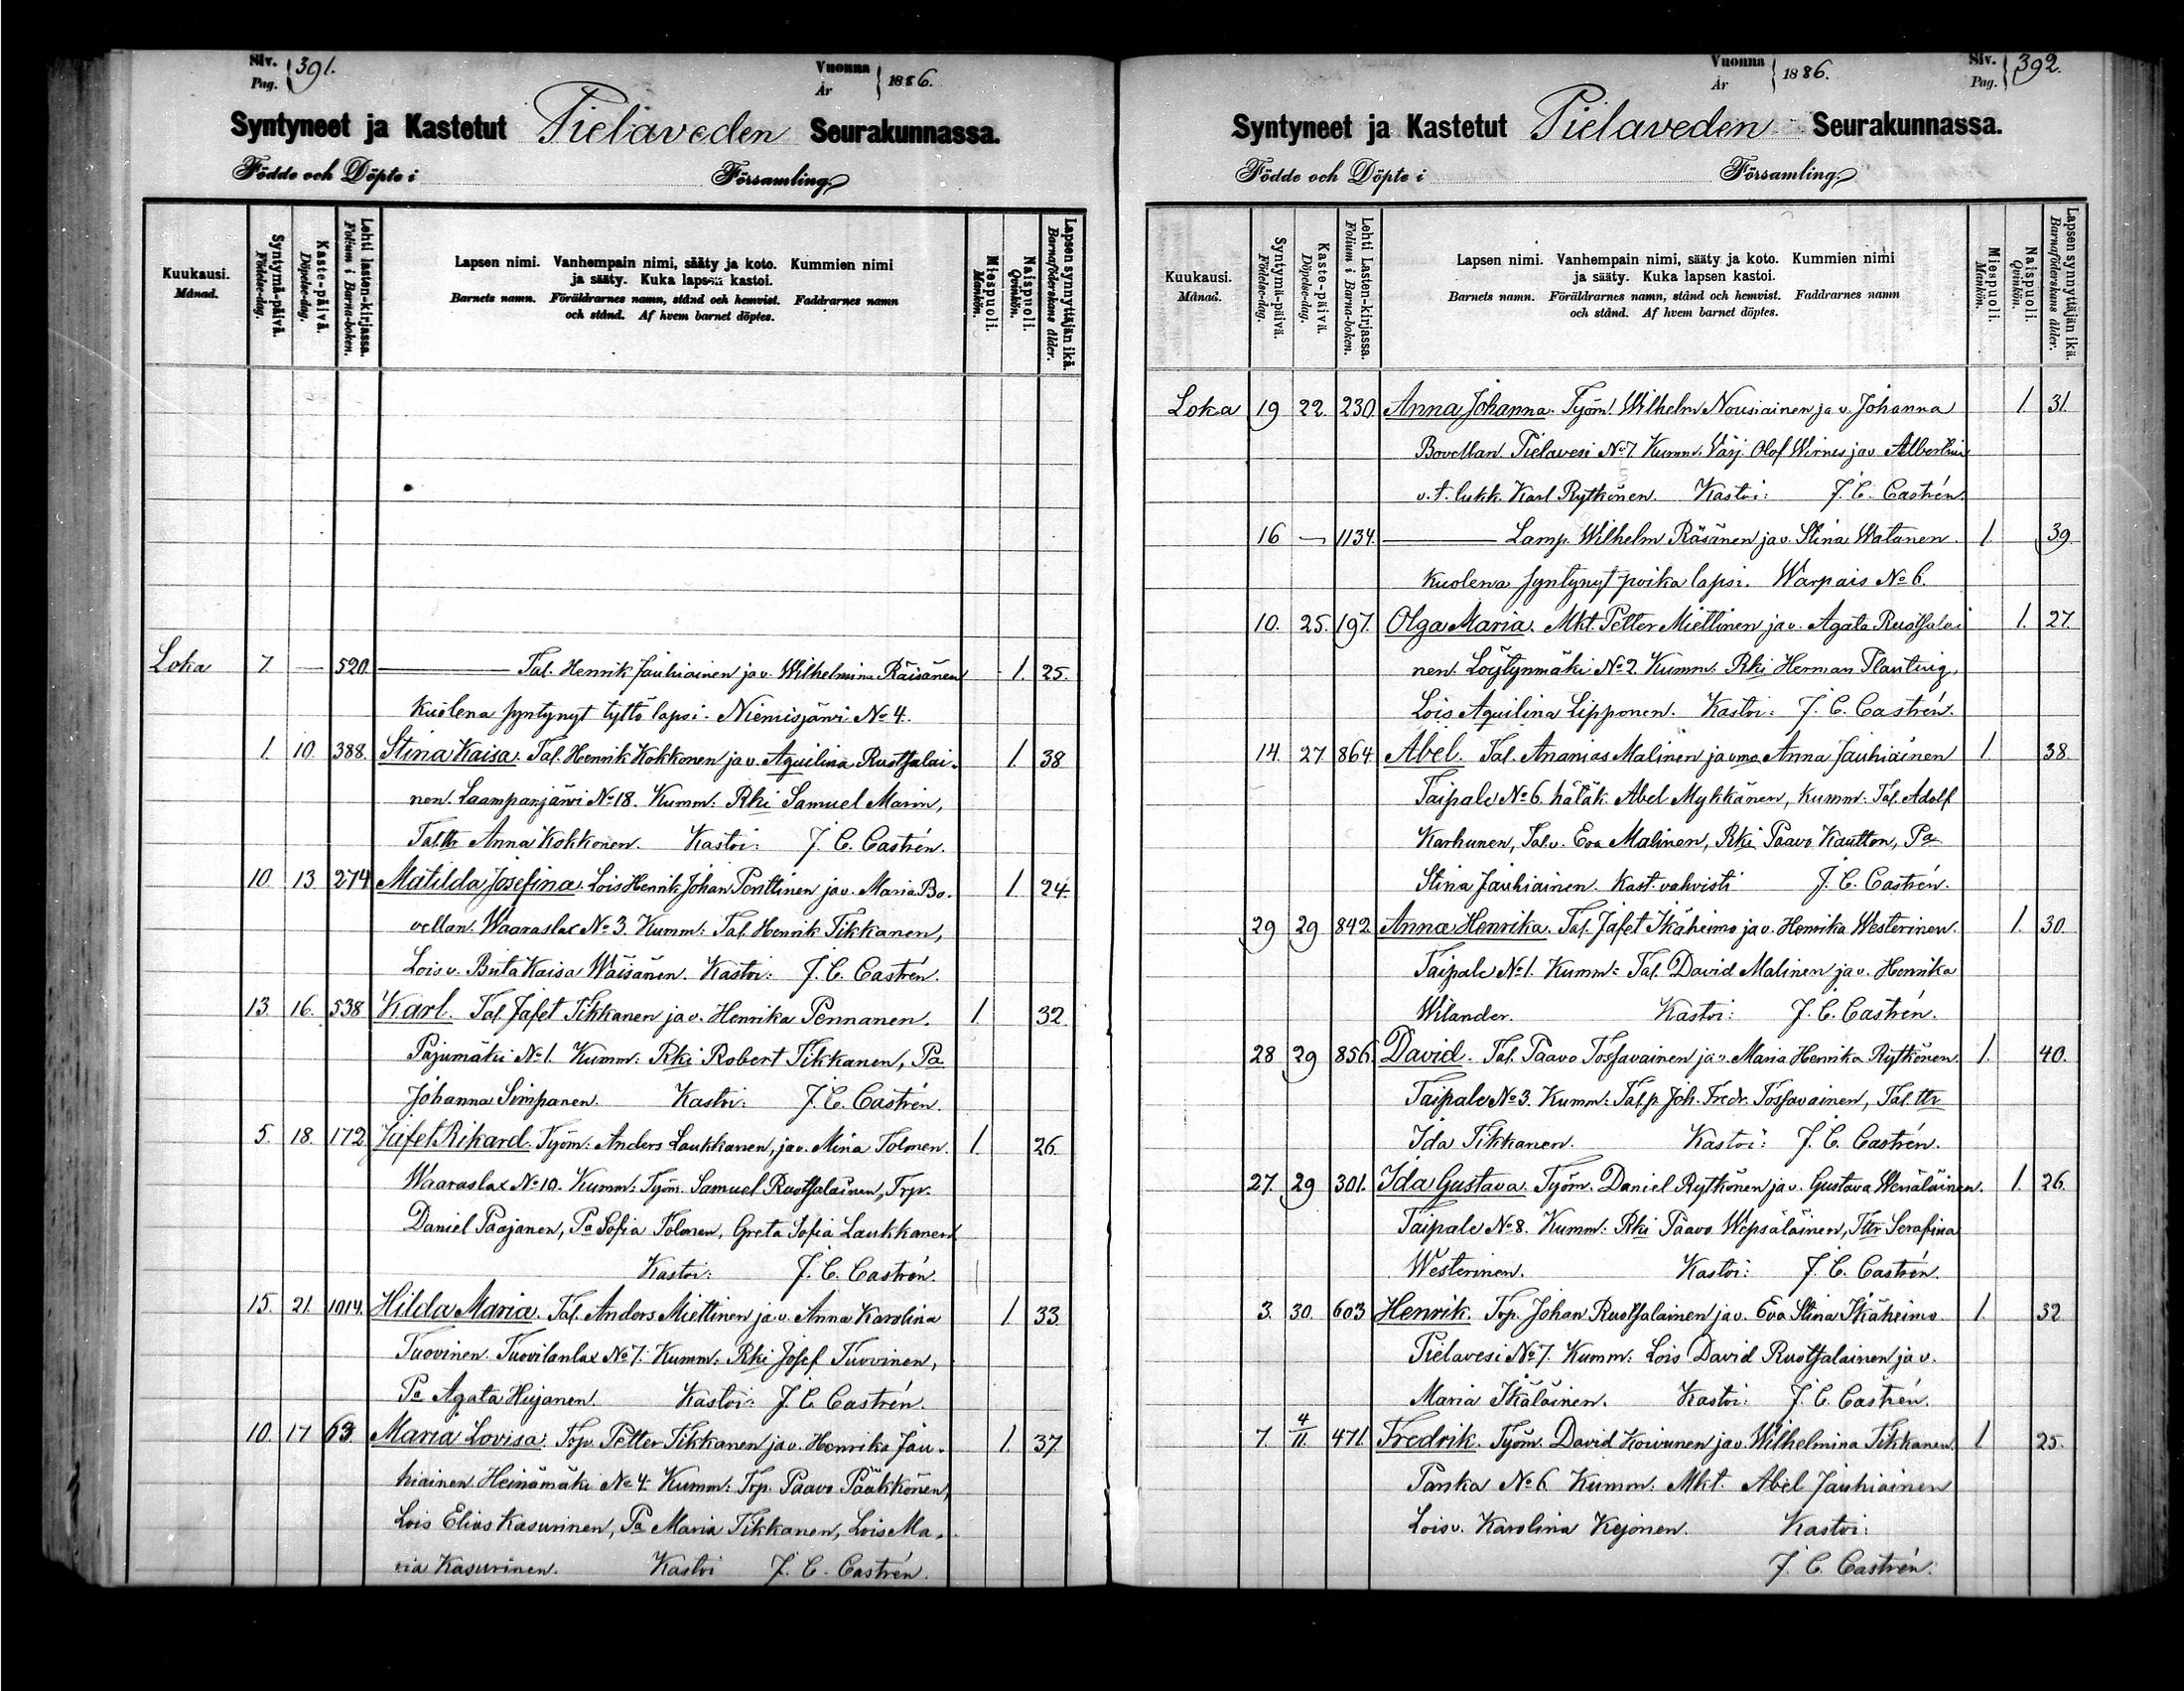 Siv. Pag. 391.
Vuonna År 1886.
Syntyneet ja Kastetut Pielaveden Seurakunnassa.
Födde och Döpte i Församling
Kuukausi. Månad.
Syntymä-päivä. Födelse-dag.
Kaste-päivä. Döpelse-dag.
Lehti lasten-kirjassa. Folium i Barna-boken.
Lapsen nimi. Vanhempain nimi, sääty ja koto. Kummien nimi
ja sääty. Kuka lapsen kastoi.
Barnets namn. Föräldrarnes namn, stånd och hemvist. Faddrarnes namn
och stånd. Af hvem barnet döptes.
Miespuoli. Mankön.
Naispuoli. Qvinkön.
Lapsen synnyttäjän ikä. Barnaföderskans ålder.
Loka 7 — 520 — Tal. Henrik Jauhiainen ja v. Wilhelmina Räisänen 1. 25.
Kuolena syntynyt tyttö lapsi. Niemisjärvi No 4.
1. 10. 388. Stina Kaisa. Tal. Henrik Kokkonen ja v. Aquilina Ruotsalai- 1. 38
nen. Laampanjärvi No 18. Kumm: Rki Samuel Marin,
Tal.ttr Anna Kokkonen. Kastoi: J. C. Castrén.
10. 13 274 Matilda Josefina. Lois Henrik Johan Penttinen ja v. Maria Bo- 1. 24.
vellan. Waaraslax No 3. Kumm: Tal. Henrik Tikkanen,
Lois v. Brita Kaisa Wäisänen. Kastoi: J. C. Castrén.
13. 16. 538 Karl. Tal. Jafet Tikkanen ja v. Henrika Pennanen. 1. 32.
Pajumäki No 1. Kumm: Rki Robert Tikkanen, Pa
Johanna Simpanen. Kastoi: J. C. Castrén.
5. 18. 172 Jafet Rikard. Työm: Anders Laukkanen, ja v. Mina Tolonen. 1. 26.
Waaraslax No 10. Kumm: Työm. Samuel Ruotsalainen, Trp.
Daniel Paajanen, Pa Sofia Tolonen, Greta Sofia Laukkanen
Kastoi: J. C. Castrén.
15. 21. 1014. Hilda Maria. Tal. Anders Miettinen ja v. Anna Karolina 1 33
Tuovinen. Tuovilanlax No 7. Kumm: Rki Josef Tuovinen,
Pa Agata Hujanen. Kastoi: J. C. Castrén.
10. 17 63. Maria Lovisa. Trp. Petter Tikkanen ja v. Henrika Jau- 1. 37
hiainen Heinämäki No 4. Kumm: Trp. Paavo Pääkkönen,
Lois Elias Kasurinen, Pa Maria Tikkanen, Lois Ma-
ria Kasurinen. Kastoi J. C. Castrén.
Vuonna År 1886.
Siv. Pag. 392.
Syntyneet ja Kastetut Pielaveden Seurakunnassa.
Födde och Döpte i Församling.
Kuukausi. Månad.
Syntymä-päivä. Födelse-dag.
Kaste-päivä. Döpelse-dag.
Lehti Lasten-kirjassa. Folium i Barna-boken.
Lapsen nimi. Vanhempain nimi, sääty ja koto. Kummien nimi
ja sääty. Kuka lapsen kastoi.
Barnets namn. Föräldrarnes namn, stånd och hemvist. Faddrarnes namn
och stånd. Af hvem barnet döptes.
Miespuoli. Mankön.
Naispuoli. Qvinkön.
Lapsen synnyttäjän ikä. Barnaföderskans ålder.
Loka 19 22. 230 Anna Johanna. Työm. Wilhelm Nousiainen ja v. Johanna 1. 31.
Bovellan. Pielavesi No 7 Kumm. Värj. Olof Wirnes ja v.
v. t. lukk. Karl Rytkönen. Kastoi: J. C. Castrén.
16 — 1134. — Lamp. Wilhelm Räsänen ja v. Stina Watanen. 1. 39.
Kuolena syntynyt poika lapsi. Warpais No 6.
10. 25. 197. Olga Maria. Mkt. Petter Miettinen ja v. Agata Ruotsalai 1. 27.
nen. Löytynmäki No 2. Kumm: Rki Herman Plantuig,
Lois Aquilina Lipponen. Kastoi: J. C. Castrén.
14. 27 864 Abel. Tal. Ananias Malinen ja vmo Anna Jauhiainen 1. 38.
Taipale No 6. hätäk. Abel Mykkänen, Kumm: Tal. Adolf
Karhunen, Tal.v. Eva Malinen, Rki Paavo Kautton, Pa
Stina Jauhiainen. Kast. vahvisti J. C. Castrén.
29 29 842 Anna Henrika. Tal. Jafet Ikäheimo ja v. Henrika Westerinen. 1. 30.
Taipale No 1. Kumm: Tal. David Malinen ja v. Henrika
Wilander. Kastoi: J. C. Castrén.
28 29 856. David. Tal. Paavo Tossavainen ja v. Maria Henrika Rytkönen. 1. 40.
Taipale No 3. Kumm: Tal.p. Joh. Fredr. Tossavainen, Tal.ttr
Ida Tikkanen. Kastoi: J. C. Castrén.
27. 29 301. Ida Gustava. Työm. Daniel Rytkönen ja v. Gustava Wenäläinen. 1. 26.
Taipale No 8. Kumm: Rki Paavo Wepsäläinen, Ttr Serafina
Westerinen. Kastoi: J. C. Castrén.
3. 30. 603 Henrik. Trp. Johan Ruotsalainen ja v. Eva Stina Ikäheimo 1. 32
Pielavesi No 7. Kumm: Lois David Ruotsalainen ja v.
Maria Ikäläinen. Kastoi: J. C. Castrén.
7. 4/11. 471. Fredrik. Työm. David Koivunen ja v. Wilhelmina Tikkanen. 1 25.
Panka No 6. Kumm: Mkt. Abel Jauhiainen
Lois v. Karolina Kejonen. Kastoi:
J. C. Castrén.